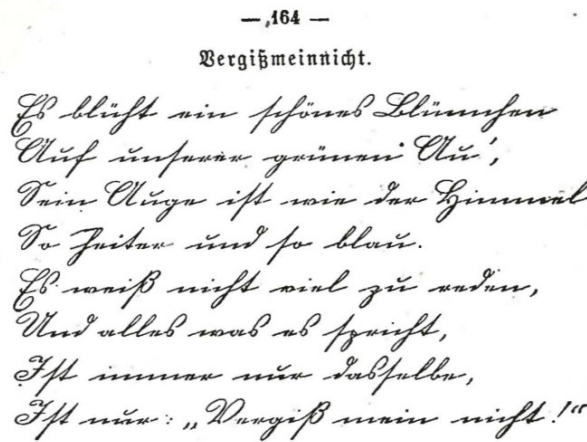 — 164 —
Vergißmeinnicht.
Es blüht ein schönes Blümchen
Auf unserer grünen Au',
Sein Auge ist wie der Himmel
So heiter und so blau.
Es weiß nicht viel zu reden,
Und alles was es spricht,
Ist immer nur dasselbe,
Ist nur: „Vergiß mein nicht!“